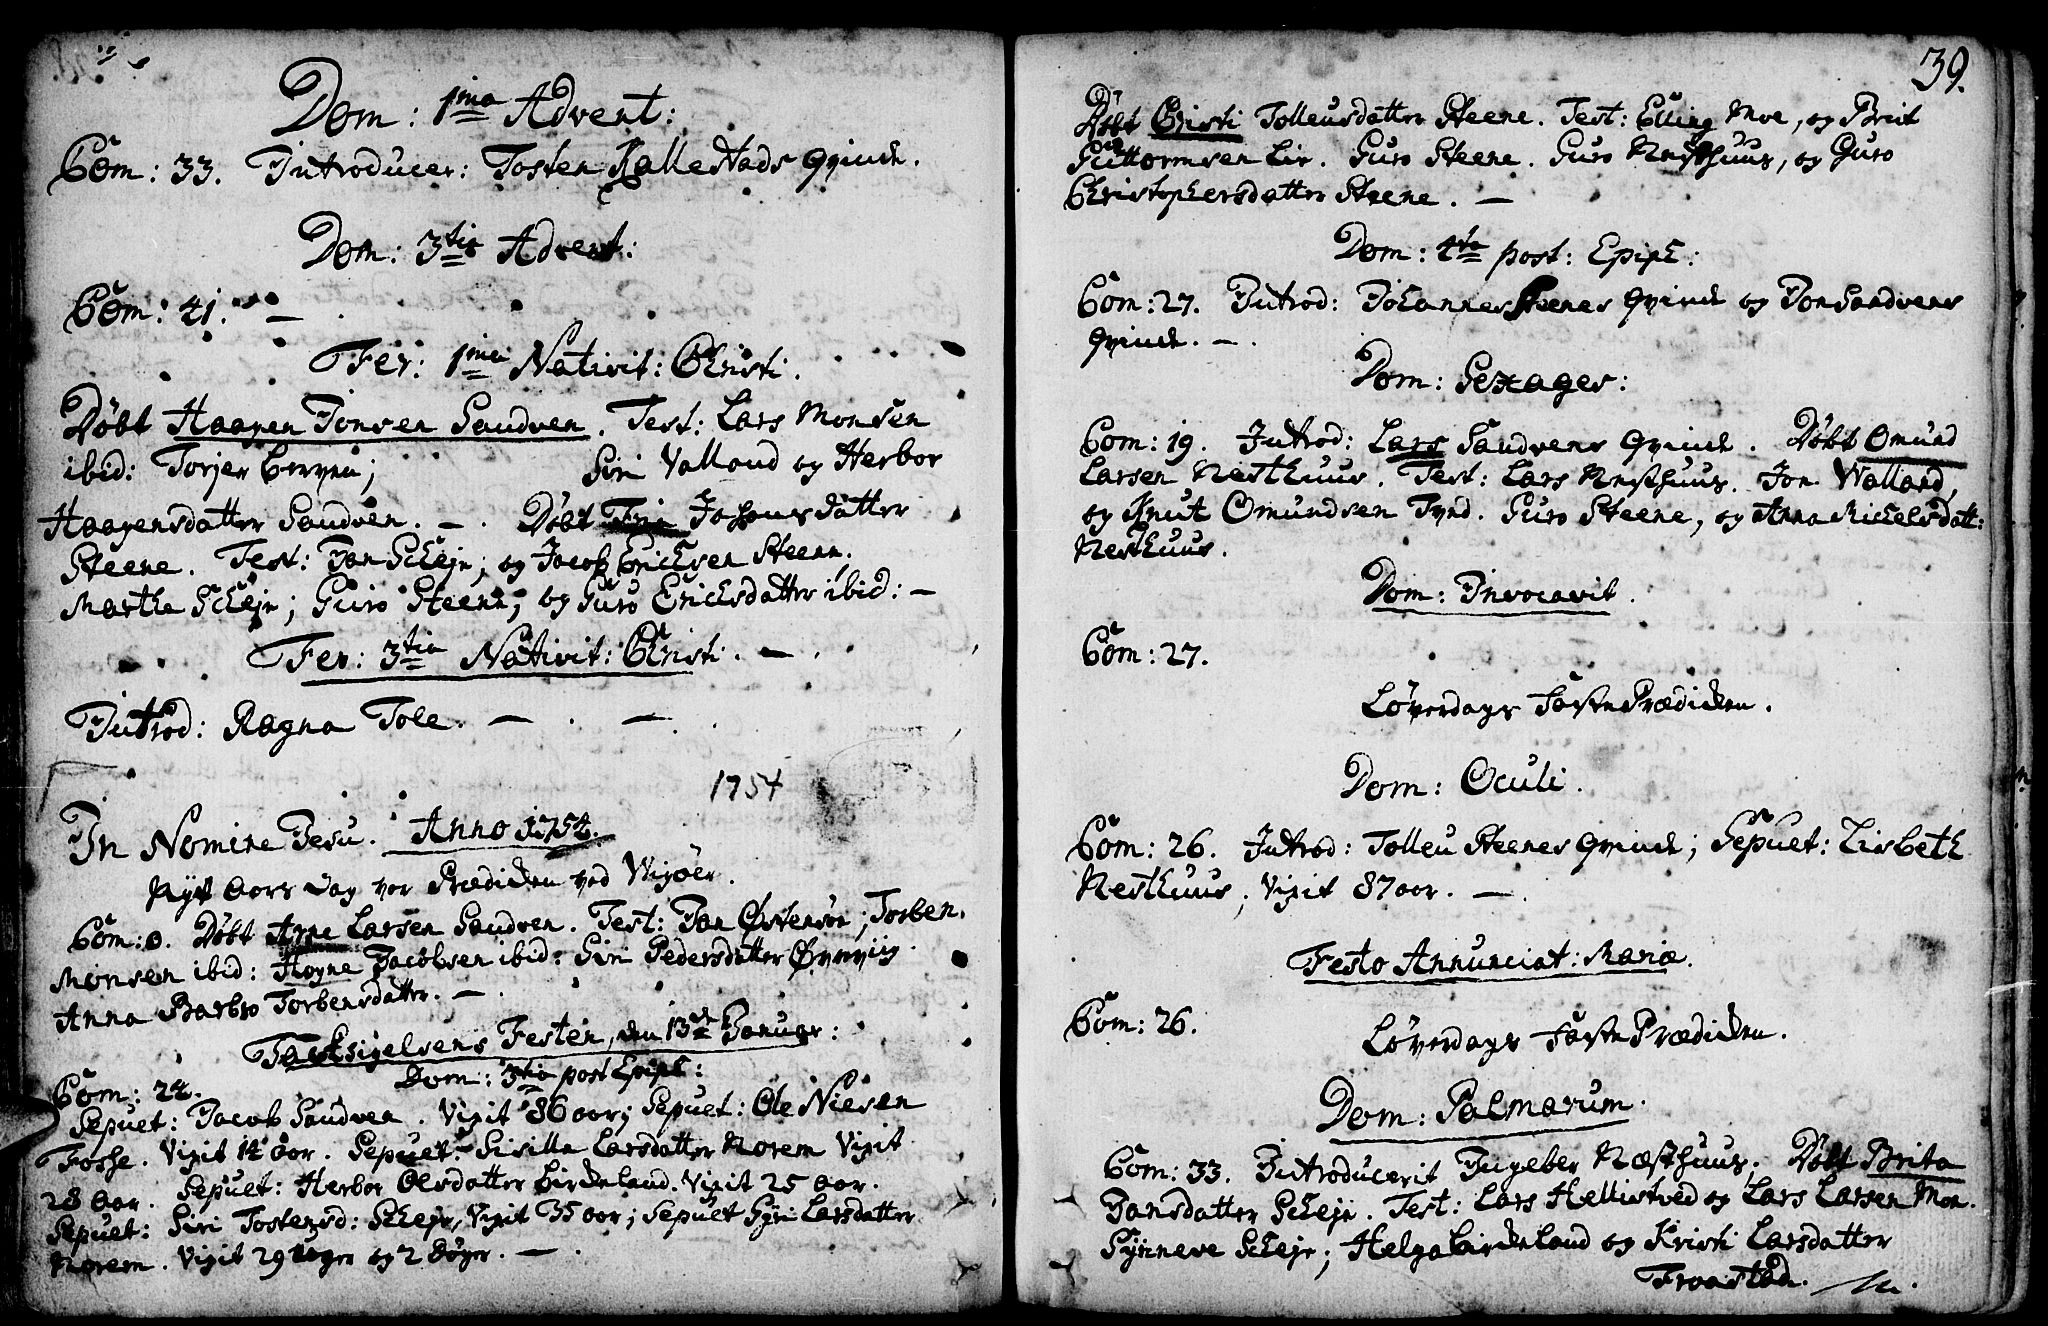 Dom: 1ma Advent:
Com: 33. Introducer: Tosten Kallestads Qvinde.
Dom: 3tia Advent:
Com: 41. —
Fer: 1ma Nativit: Christi.
Døbt Haagen Jonsen Sandven. Test: Lars Monsen
ibid: Torjer; Siri Valland og Herbor
Haagensdatter Sandven. —. Døbt Johansdatter
Steene. Test: Jan Scheje; og Jacob Ericksen Steene,
Marthe Scheje; Guro Steene; og Guro Ericksdatter ibid: —
Fer: 3tia Nativit: Christi. —
Introd: Ragna Tole. — . —
1754
In Nomine Jesu. Anno 1754.
Nyt Aars Dag var Prædicken ved Vigøer.
Com: 0. Døbt Arne Larsen Sandven. Test: Jan Østensøn; Torben
Monsen ibid: Hoyne Jacobsen ibid: Siri Pedersdatter Ørnviig.
Anna Barbro Torbensdatter. —
Tacksigelsens Festen, den 13de Januar:
Dom: 3tia post Epiph:
Com: 24.
Sepuet: Jacob Sandven. Vixit 86 aar; Sepuet: Ole Nielsen
Fosse. Vixit 12 Aar. Sepuet: Sisilla Larsdatter Norem Vixit
28 Aar. Sepuet: Herbor Olesdatter Birkeland. Vixit 25 Aar.
Sepuet: Siri Tostensd: Scheje, Vixit 35 aar; Sepuet Syri Larsdatter
Norem. Vixit 29 uger og 2 Døger. —
39.
Døbt Christi Tolleusdatter Steene. Test: Elling Moe, og Brit
Guttormsen Lie. Guro Steene. Guro Næsthuus, og Guro
Christophersdatter Steene. —
Dom: 4ta post: Epiph:
Com: 27. Introd: Johannes Steenes Qvinde og Jon Sandvens
Qvinde. —.
Dom: Sexages:
Com: 19. Introd: Lars Sandvens Qvinde. Døbt Omund
Larsen Nesthuus. Test: Lars Næsthuus. Jon Walland,
og Knut Omundsen Tynd. Guro Steene, og Anna Michelsdatt:
Nesthuus.
Dom: Invocavit.
Com: 27.
Løverdags Faste Prædicken.
Dom: Oculi.
Com: 26. Introd: Tolleu Steenes Qvinde; Sepuet: Lisbeth
Nesthuus; Vixit 87 aar. —.
Festo Annunciat: Mariæ.
Com: 26.
Løverdags Faste Prædicken.
Dom: Palmarum.
Com: 33. Introducerit Ingeber Næsthuus. Døbt Brita
Jansdatter Scheje. Test: Lars Hellistved og Lars Larsen Moe.
Synneve Scheje; Helga Birkeland og Kristi Larsdatter
Froastad.